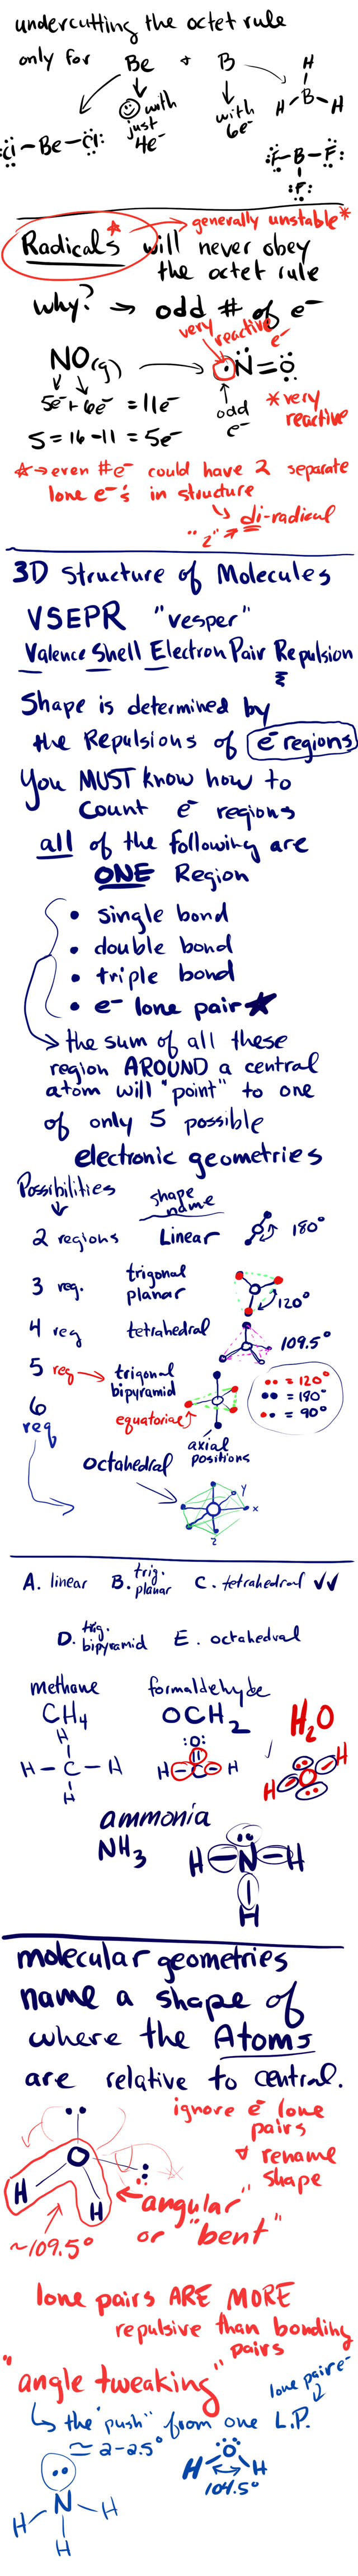 undercutting the octet rule
only for Be + B
with just 4e⁻
with 6e⁻
:Cl-Be-Cl:
H
H B H
:F-B-F:
:F:
Radicals* will never obey
generally unstable*
the octet rule
why? → odd # of e⁻
very reactive e⁻
NO(g) → ·N=O
5e⁻+6e⁻ = 11e⁻
odd e⁻
*very reactive
S=16-11 = 5e⁻
☆→even #e⁻ could have 2 separate
lone e⁻'s in structure
↳ di-radical
"2"
3D Structure of Molecules
VSEPR "vesper"
Valence Shell Electron Pair Repulsion
Shape is determined by
the Repulsions of e⁻ regions
You MUST know how to
count e⁻ regions
all of the following are
ONE Region
• single bond
• double bond
• triple bond
• e⁻ lone pair★
→ the sum of all these
region AROUND a central
atom will "point" to one
of only 5 possible
electronic geometries
Possibilities shape name
2 regions Linear 180°
3 reg. trigonal planar 120°
4 reg tetrahedral 109.5°
5 reg → trigonal bipyramid
•• = 120°
•• = 180°
•• = 90°
equatorial
axial positions
6 req
octahedral
y
x
z
A. linear B. trig. planar C. tetrahedral ✓✓
D. trig. bipyramid E. octahedral
methane formaldehyde
CH₄ OCH₂ H₂O
H
H-C-H
H
:O:
H-C-H
H O H
ammonia
NH₃
H-N-H
H
molecular geometries
name a shape of
where the Atoms
are relative to central.
ignore e⁻ lone
pairs
& rename
shape
O
H
H
← "angular"
or "bent"
~109.5°
lone pairs ARE MORE
repulsive than bonding
pairs
"angle tweaking"
lone pair e⁻
↳ the "push" from one L.P.
≃ 2-2.5°
H O H
104.5°
N
H H
H